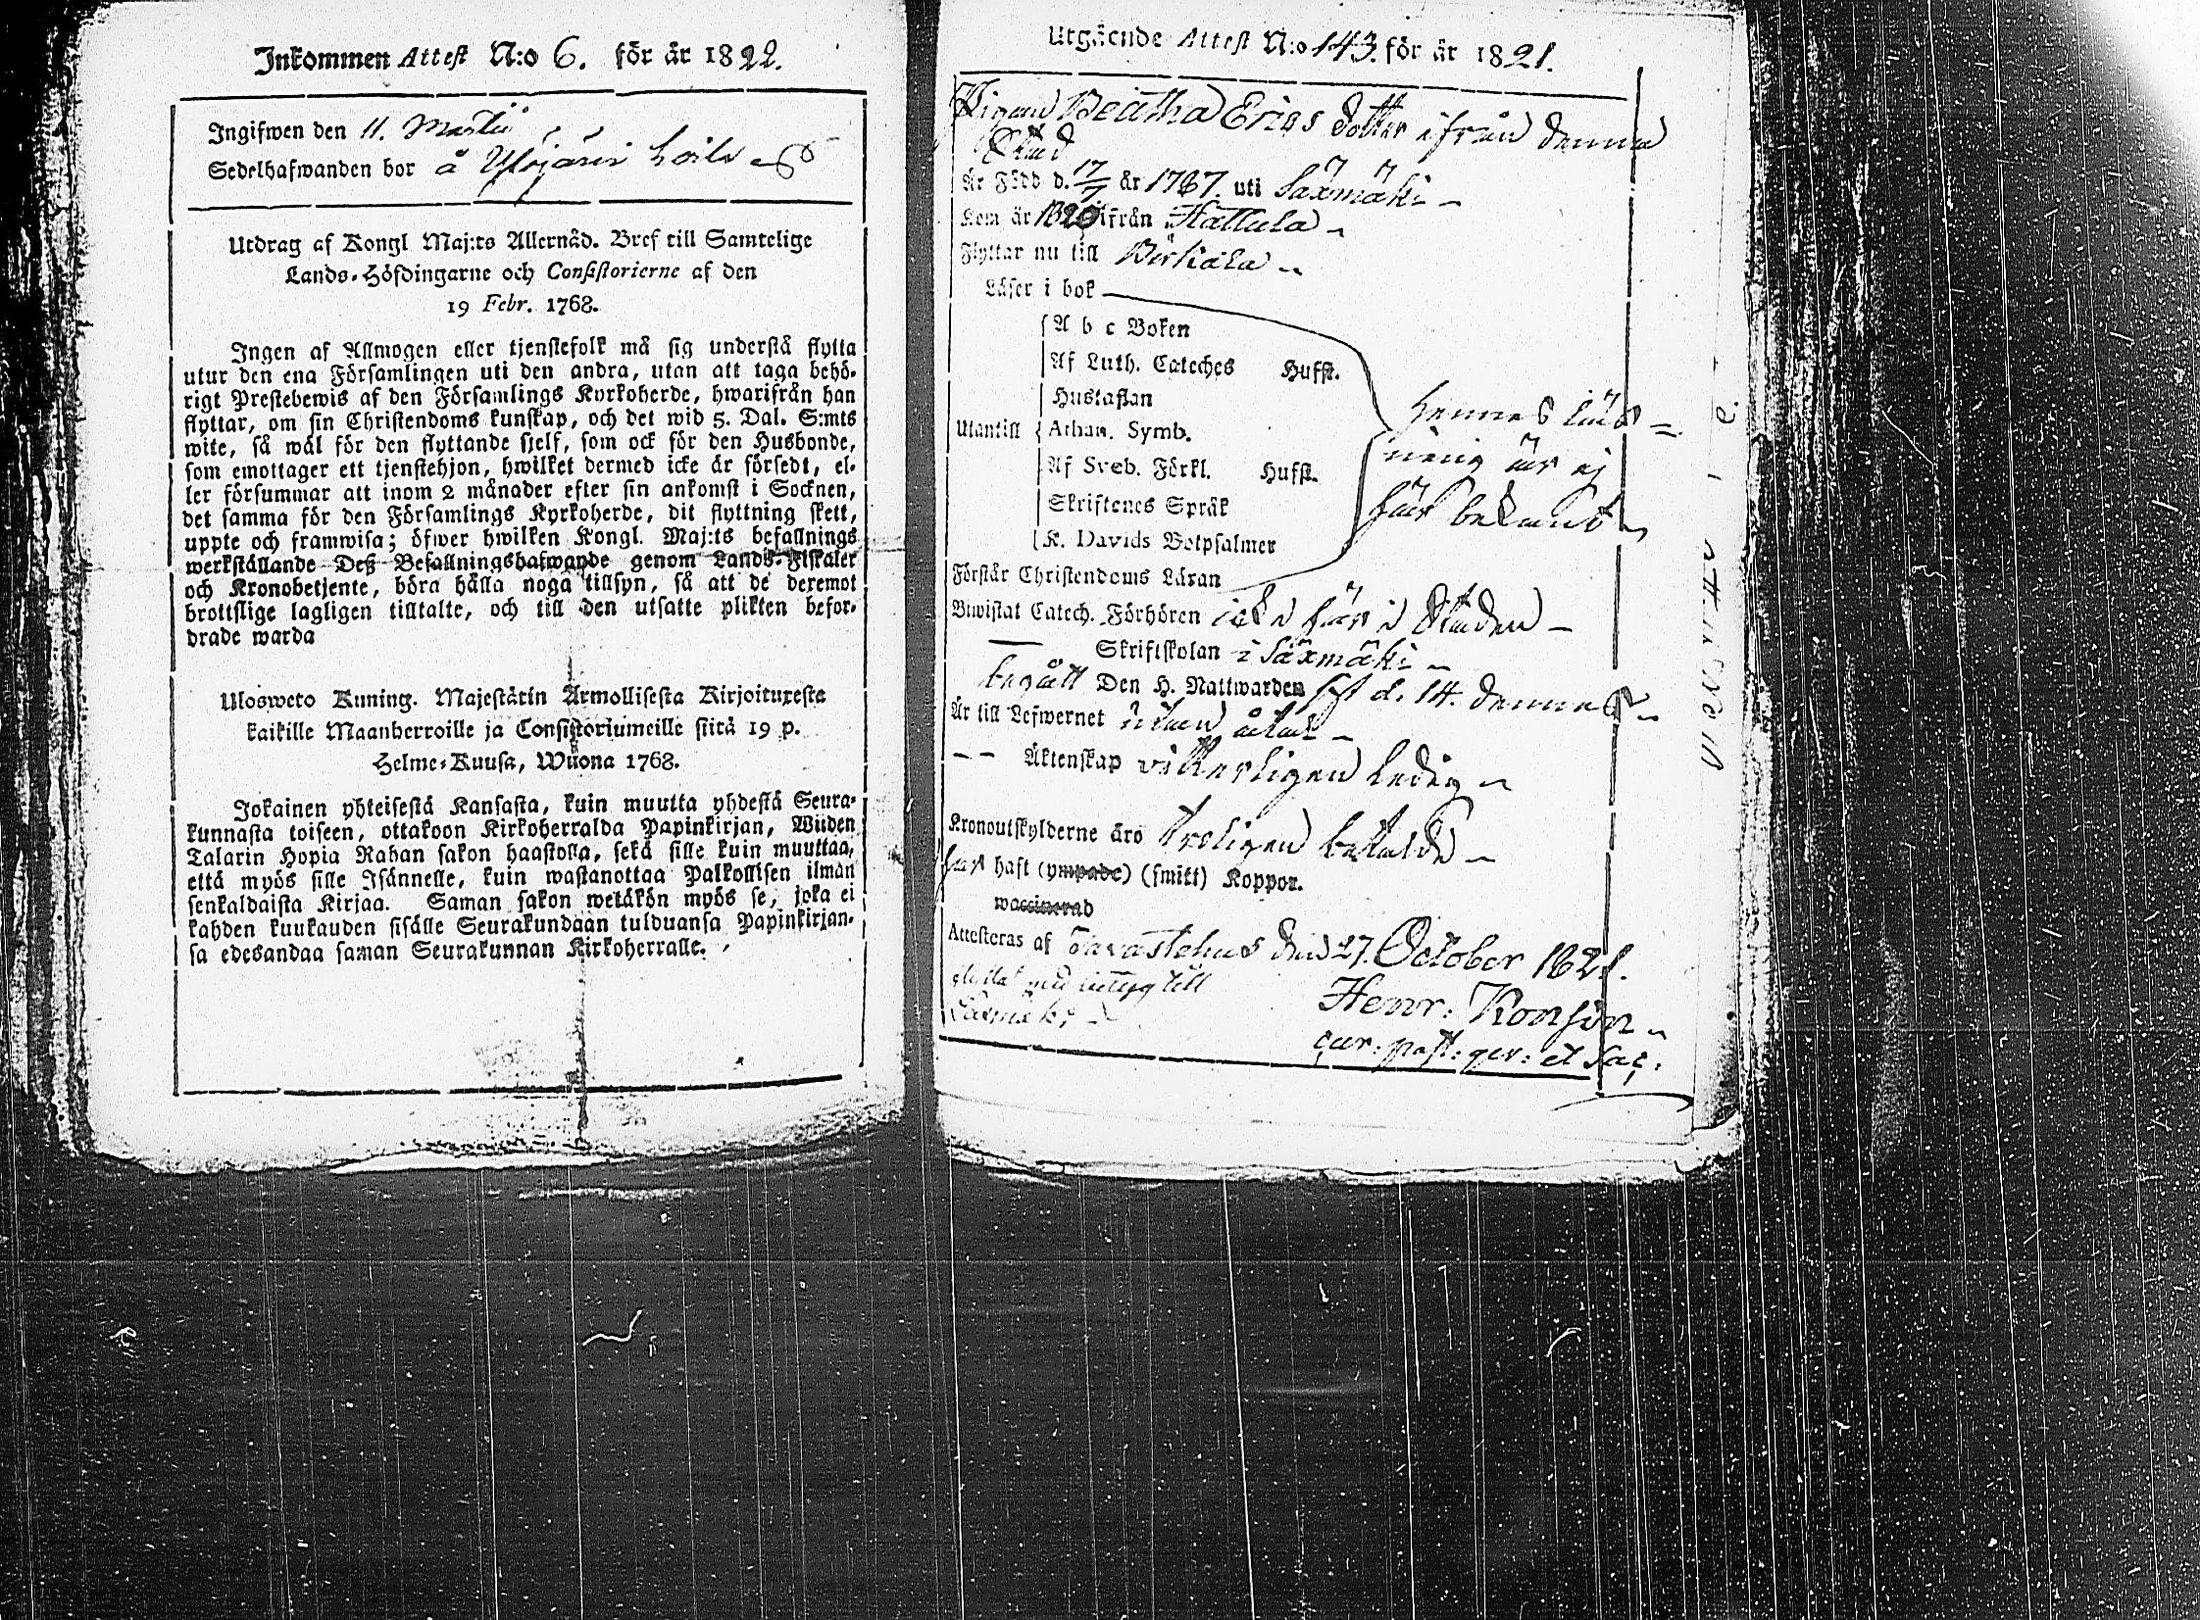 Inkommen Attest N:o 6. för år 1822.
Ingifwen den 11. Martii
Sedelhafwanden bor å Ylöjärvi
Utdrag af Kongl Maj:ts Allernåd. Bref till Samtelige
Lands-Höfdingarne och Consistorierne af den
19 Febr. 1768.
Ingen af Allmogen eller tjenstefolk må sig understå flytta
utur den ena Församlingen uti den andra, utan att taga behö-
rigt Prestebewis af den Församlings Kyrkoherde, hwarifrån han
flyttar, om sin Christendoms kunskap, och det wid 5. Dal. S:mts
wite, så wäl för den flyttande sjelf, som ock för den Husbonde,
som emottager ett tjenstehjon, hwilket dermed icke är försedt, el-
ler försummar att inom 2 månader efter sin ankomst i Socknen,
det samma för den Församlings Kyrkoherde, dit flyttning skett,
uppte och framwisa; öfwer hwilken Kongl. Maj:ts befallnings
werkställande Deß Befallningshafwande genom Lands-Fiskaler
och Kronobetjente, böra hålla noga tillsyn, så att de deremot
brottslige lagligen tilltalte, och till den utsatte plikten befor-
drade warda
Ulosweto Kuning. Majestätin Armollisesta Kirjoituxesta
kaikille Maanherroille ja Consistoriumeille siitä 19 p.
Helme-Kuusa, Wuona 1768.
Jokainen yhteisestä Kansasta, kuin muutta yhdestä Seura-
kunnasta toiseen, ottakoon Kirkoherralda Papinkirjan, Wiiden
Talarin Hopia Rahan sakon haastolla, sekä sille kuin muuttaa,
että myös sille Isännelle, kuin wastanottaa Palkollisen ilman
senkaldaista Kirjaa. Saman sakon wetäkön myös se, joka ei
kahden kuukauden sisälle Seurakundaan tulduansa Papinkirjan-
sa edesandaa saman Seurakunnan Kirkoherralle.
Utgående Attest N:o 143. för år 1821.
Pigan Beatha Erics dotter ifrån denna
Stad
Är Född d. 17/7 år 1767. uti Säxmäki
Kom år 1820 ifrån Hattula
Flyttar nu till Birkala
Läser i bok
A b c Boken
Af Luth. Cateches Hufst.
Hustaflan
Utantill Athan. Symb.
Af Sveb. Förkl. Hufst.
Skriftenes Språk
K. Davids Botpsalmer
Hennes läs-
ning är ej
här bekant
Förstår Christendoms Läran
Biwistat Catech. Förhören icke här i Staden
Skriftskolan i Säxmäki
begått Den H. Nattwarden sist d. 14. dennes
Är till Lefwernet utan åtal
Äktenskap vitterligen ledig
Kronoutskylderne äro troligen betalde
har haft (ympade) (smitt) Koppor.
waccinerad
Attesteras af Tavastehus den 27. October 1821.
Henr: Konsin
cur: past: ger: et Sac:
till
Säxmäki